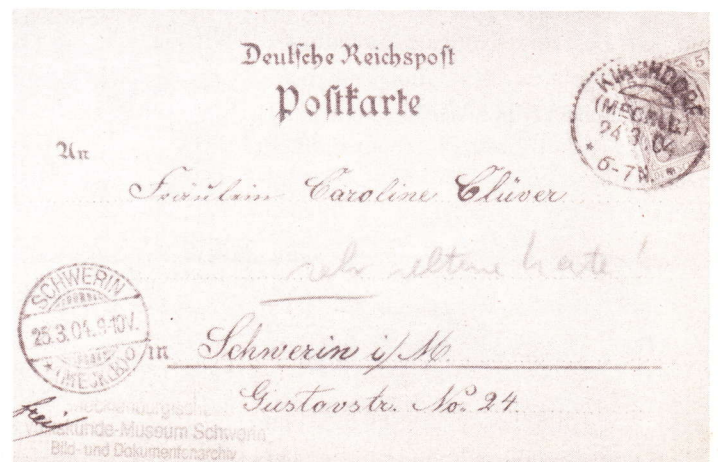 Deutsche Reichspost
Postkarte
5
KIRCHDORF
(MECKLB.)
24.3.04
* 6-7N. *
An
Fräulein Caroline Clüver
sehr seltene Karte!
SCHWERIN
25.3.04.9-10V.
* (MECKLB) 
in Schwerin i/M.
Gustavstr. No. 24.
frei
Mecklenburgisches
Volkskunde-Museum Schwerin
Bild- und Dokumentenarchiv